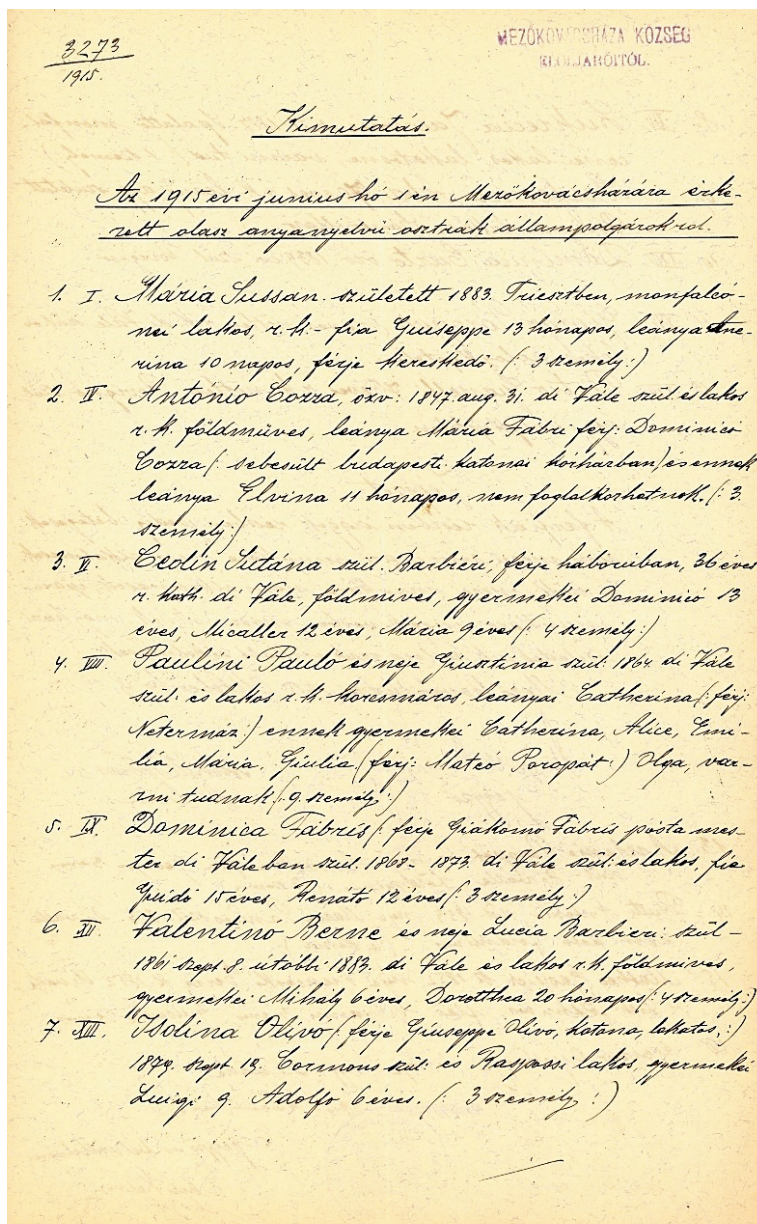 3273
1915.
MEZŐKOVÁCSHÁZA KÖZSÉG
ELÖLJÁRÓITÓL.
Kimutatás.
Az 1915 évi junius hó 1 én Mezőkovácsházára érke-
zett olasz anyanyelvű osztrák állampolgárokrol.
1. I. Mária Sussan. született 1883. Triesztben, monfalcó-
nei lakos, r. k. - fia Guiseppe 13 hónapos, leánya Ane-
rina 10 napos, férje kereskedő. (: 3 személy :)
2. IV. António Cozza, özv: 1847. aug. 31. di Vále szül. és lakos
r. k. földmüves, leánya Mária Fábri férj: Dominico
Cozza (: sebesült budapesti katonai kórházban) és ennek
leánya Elvina 11 hónapos, nem foglalkozhatnak. (: 3.
személy :)
3. VI. Cedin Sutána szül. Barbiéri, férje háboruban, 36 éves
r. kath. di Vále, földmives, gyermekei Dominicó 13
éves, Micaller 12 éves, Mária 9 éves (: 4 személy :)
4. VIII. Paulini Pauló és neje Giusztinia szül: 1864. di Vále
szül: és lakos r. k. korcsmáros, leányai Catherina (: férj:
Netermáz :) ennek gyermekei Catherina, Alice, Emi-
lia, Mária. Giulia (férj: Mateó Poropát :) Olga, var-
rni tudnak (: 9. személy :)
5. IX. Dominica Fábris (: férje Giákomó Fábris pósta mes-
ter di Váleban szül. 1868 - 1873. di Vále szül: és lakos, fia
Guidó 15 éves, Renátó 12 éves (: 3 személy :)
6. XII. Valentinó Berne és neje Lucia Barbieri: szül -
1861 szept. 8. utóbbi 1883. di Vale és lakos r. k. földmives,
gyermekei Mihály 6 éves, Dorotthea 20 hónapos (: 4 személy :)
7. XIII. Isolina Olivó (: férje Giuseppe Olivó, katona, lakatos, :)
1879. szept 19. Cormons szül: és Raspassi lakos, gyermekei
Luigi 9. Adolfó 6 éves. (: 3 személy :)